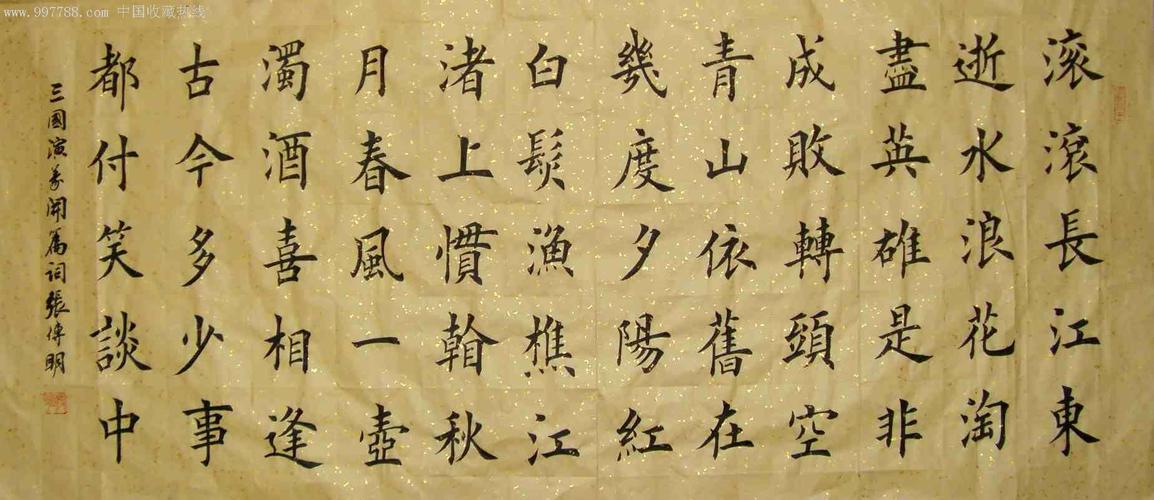 www.997788.com 中国收藏热线
滚滾長江東
逝水浪花淘
盡英雄是非
成敗轉頭空
青山依舊在
幾度夕陽紅
白髮漁樵江
渚上慣翰秋
月春風一壺
濁酒喜相逢
古今多少事
都付笑談中
三國演義開篇词張傳明